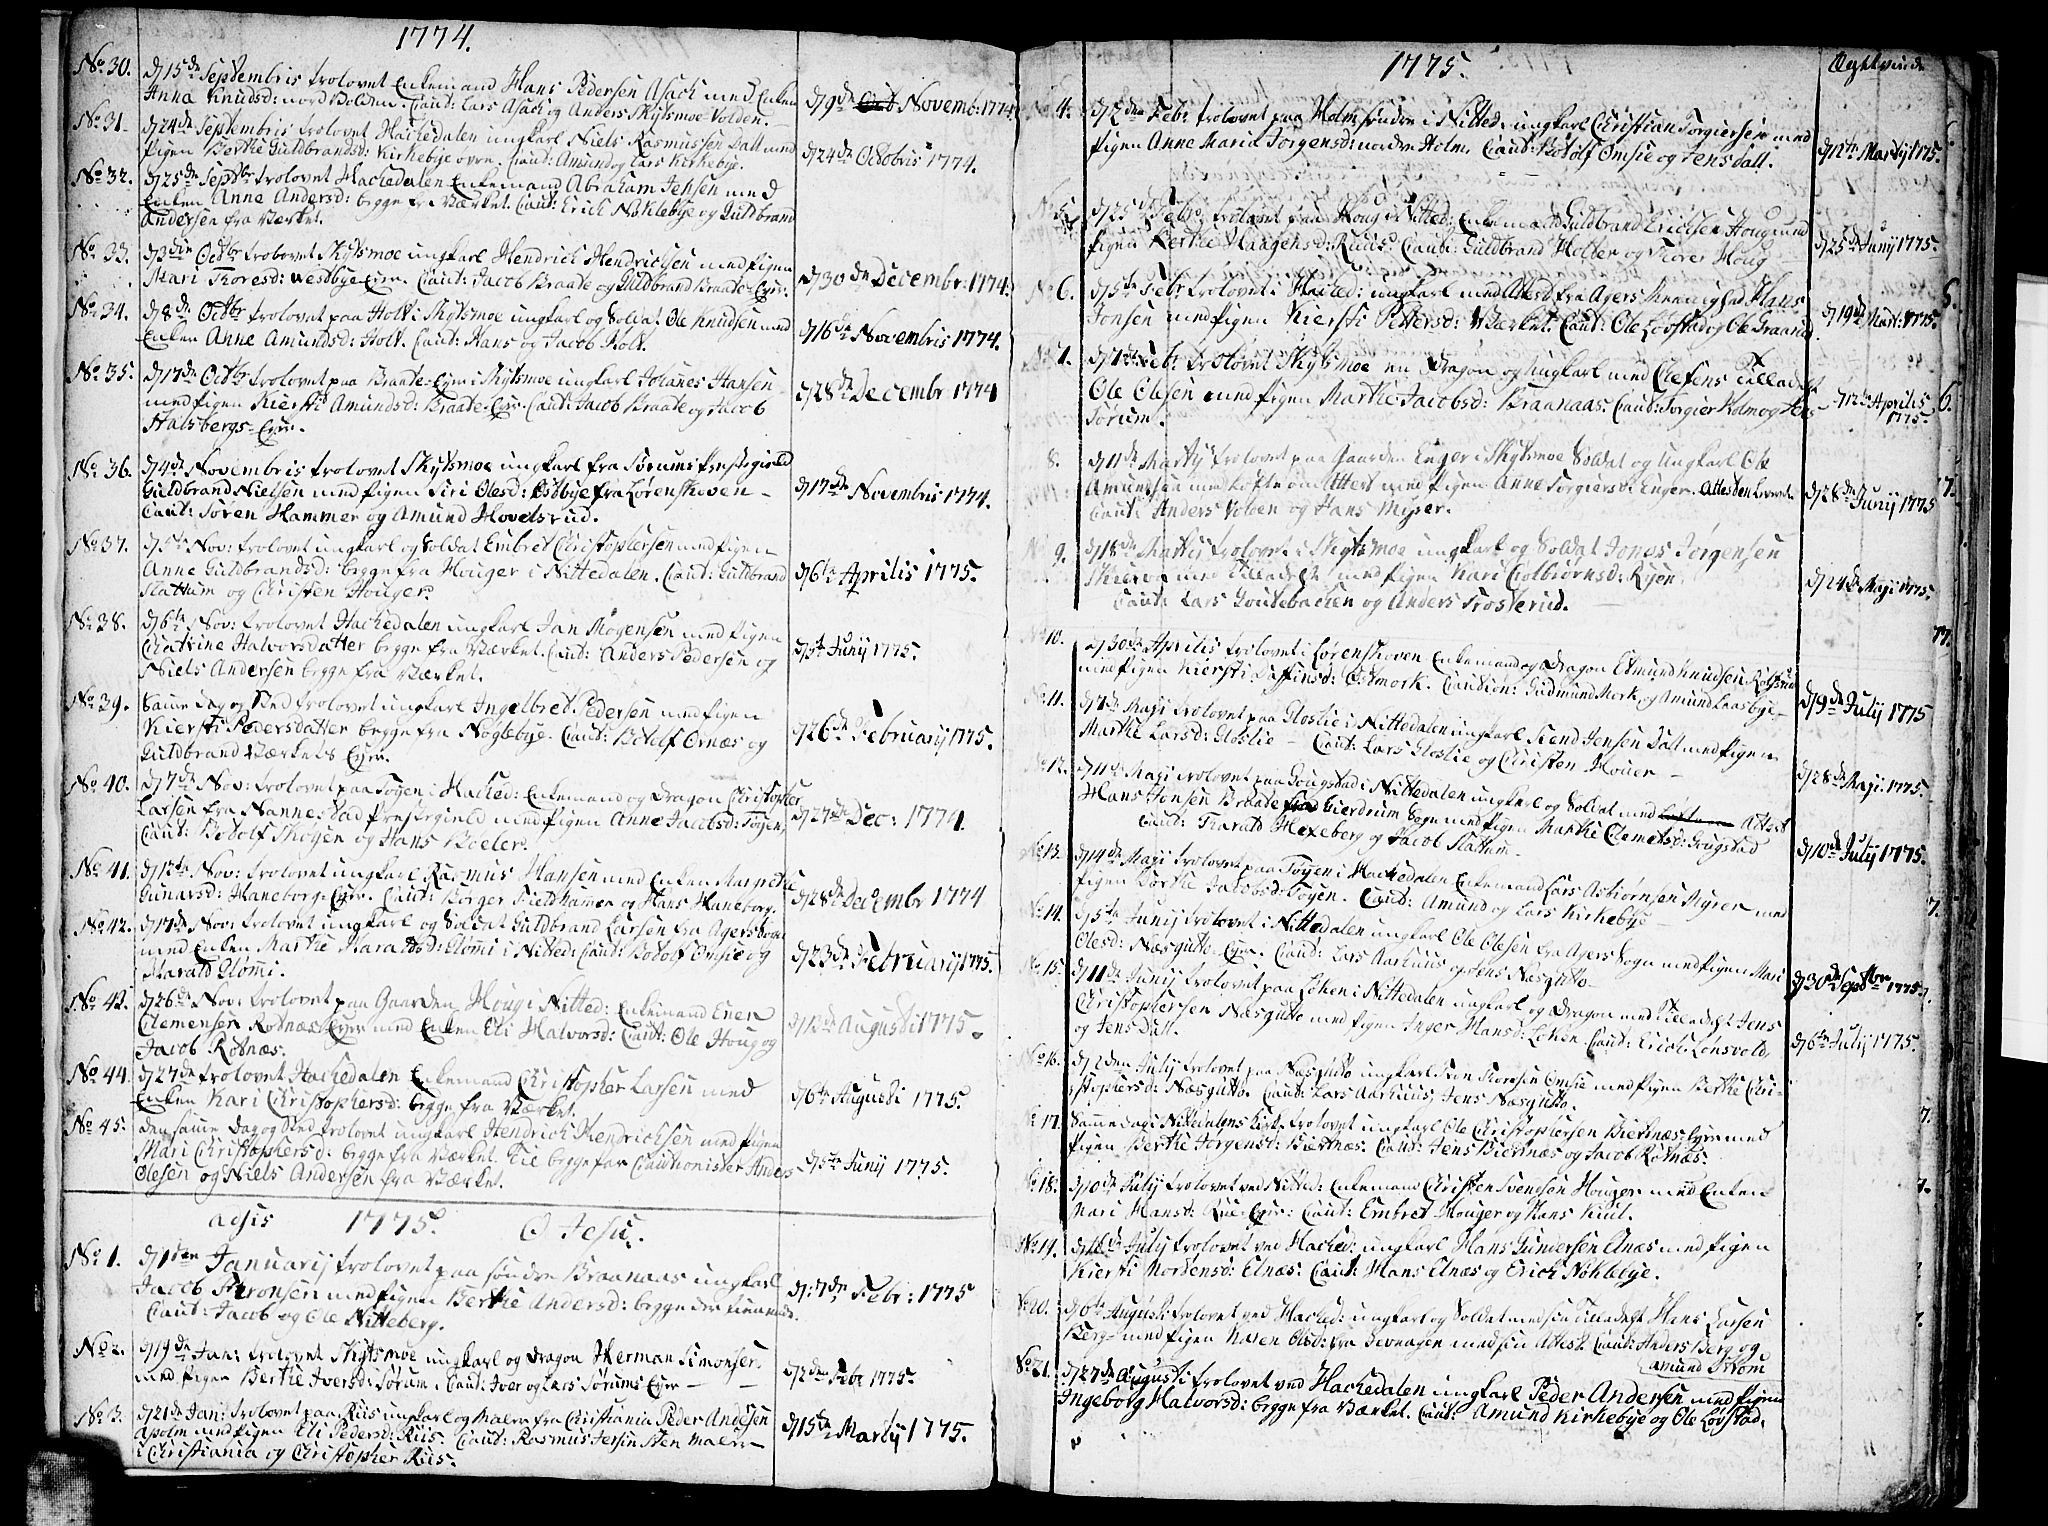 1774.
No 30. d 15de Septembris trolovet Enkemand Hans Pedersen Asach med Enken
Anna Knudsd: nord Bolden. Caut: Lars Asach og Anders Skytsmoe-Volden. d 9de Novemb: 1774
No 31. d 24de Septembris trolovet Hackedalen ungkarl Niels Rasmussen Dall med
Pigen Berthe Guldbrandsd: Kirkebye øvre. Caut: Amund og Lars Kirkebye. d 24de Octobris 1774.
No 32. d 25de Septbr trolovet Hackedalen Enkemand Abraham Jensen med
Enken Anne Andersd: begge fra Værket. Caut: Erich Nøklebye og Guldbrand
Andersen fra Værket.
No 33. d 3die Octbr trolovet Skytsmoe ungkarl Hendrich Hendrichsen med Pigen
Mari Thoresd: westbye-Eyer. Caut: Jacob Braate og Guldbrand Braate-Eyer. d 30de Decembr: 1774.
No 34. d 8de Octbr trolovet paa Holt i Skytsmoe ungkarl og Soldat Ole Knudsen med
Enken Anne Amundsd: Holt. Caut: Hans og Jacob Holt. d 16de Novembris 1774.
No 35. d 17de Octbr trolovet paa Braate-Eyer i Skytsmoe ungkarl Johanes Hansen
med Pigen Kiersti Amundsd: Braate-Eyer. Caut: Jacob Braate og Jacob
Halsbergs-Eyer. d 28de Decembr 1774
No 36. d 4de Novembris trolovet Skytsmoe ungkarl fra Sørums Prestegield
Guldbrand Nielsen med Pigen Siri Olesd: Østbye fra Lørenskoven -
Caut: Søren Hammer og Amund Hovelsrud. d 17de Novembris 1774.
No 37. d 5te Nov: trolovet ungkarl og Soldat Embret Christophersen med Pigen
Anne Guldbrandsd: begge fra Houger i Nittedalen. Caut: Guldbrand
Slattum og Christen Houger. d 6te Aprilis 1775.
No 38. d 6te Nov: trolovet Hackedalen ungkarl Jan Mogensen med Pigen
Chatrine Halvorsdatter begge fra Værket. Caut: Anders Pedersen og
Niels Andersen begge fra Værket. d 5te Juny 1775.
No 39. Samme dag og Sted trolovet ungkarl Ingelbret Pedersen med Pigen
Kiersti Pedersdatter begge fra Nøglebye. Caut: Botolf Ornæs og
Guldbrand Værkets Eyer. d 26de Februarij 1775.
No 40. d 7de Nov: trolovet paa Tøyen i Hacked: Enkemand og Dragon Christopher
Larsen fra Nannestad Prestegield med Pigen Anne Jacobsd: Tøyen,
Caut: Botolf Skøyen og Hans Bøeler. d 27de Dec: 1774.
No 41. d 13de Nov: trolovet ungkarl Rasmus Hansen med Enken Margrethe
Gunarsd: Haneborg-Eyer. Caut: Børger Fieldhamer og Hans Haneborg. d 28de Decembr 1774
No 42. d 17de Nov: trolovet ungkarl og Soldat Guldbrand Larsen fra Agers Sogn
med Enken Marthe Haraldsd: Glømi i Nitted: Caut: Botolf Omsie og
Harald Glømi. d 23de Februarij 1775.
No 42. d 26de Nov: trolovet paa Gaarden Houg i Nitted: Enkemand Even
Clemensen Rotnæs-Eyer med Enken Eli Halvorsd: Caut: Ole Houg og
Jacob Rotnæs. Augusti 1775.
No 44. d 27de trolovet Hackedalen Enkemand Christopher Larsen med
Enken Kari Christophersd: begge fra Værket. d 6te Augusti 1775.
No 45. den samme Dag og Sted trolovet ungkarl Hendrich Hendrichsen med Pigen
Mari Christophersd: begge fra Værket. Til begge par Cautionister Anders
Olesen og Niels Andersen fra Værket. d 5te Juny 1775.
1775. O Jesu.
No 1. d 1ten Januarij trolovet paa søndre Braanaas ungkarl
Jacob med Pigen Berthe Andersd: begge der
Caut: Jacob og Ole Nitteberg. d: 7de Febr: 1775
No 2. d 19de Jan: trolovet Skytsmoe ungkarl og Dragon Herman Simonsen
med Pigen Berthe Iversd: Sørum. Caut: Iver og Lars Sørums Eyer - - d 2den Febr 1775
No 3. d 21de Jan: trolovet paa Riis ungkarl og Maler fra Christiania Peder Andersen
Apolm med Pigen Eli Pedersd: Riis. Caut: Rasmus Jensen Sten Maler
i Christiania og Christopher Riis. d 15de Martij 1775.
1775.
4. d 2den Febr: trolovet paa Holm søndre i Nitted: ungkarl Christian Torgiersen med
Pigen Anne Maria Jorgensd: nordre Holm. Caut: Botolf Omsie og Jens Dall. d 12te Martij 1775.
No 5. d 25 Febr: trolovet paa Houg i Nitted: Enkemand Guldbrand Erichsen Houg med
Pigen Berthe Haagensd: Ruud. Caut: Guldbrand Holter og Thorer Houg d 25de Junij 1775.
No 6. d 5te Febr trolovet i Hacked: ungkarl med Attest fra Agers Menighed Hans
Jonsen med Pigen Kiersti Pettersd: Værket. Caut: Ole Løvstad og Ole Graarud d 19de Mart: 1775.
No 7. Febr: trolovet Skytsmoe en Dragon og Ungkarl med Chefens Tilladelse
Ole Olesen med Pigen Marthe Jacobsd: Braanaas. Caut: Torgier Holm og Jens
Sørum. d 12te Aprilis 1775.
8. d 11de Martij trolovet paa Gaarden Enger i Skytsmoe Soldat og Ungkarl Ole
Amundsen med Løfte om Attest med Pigen Anne Torgiersd: Enger. Attesten leveret
Caut: Anders Volden og Hans Myser. d 28de Junij 1775
No 9. d 18de Martij trolovet i Skytsmoe ungkarl og Soldat Jonas Jørgensen
Skierva med Tilladelse med Pigen Kari Colbiørnsd: Ryen.
Caut: Lars Goutebachen og Anders Trosterud. d 24de Maji 1775.
No 10. d 30te Aprilis trolovet i Lørenskoven Enkemand og Dragon Edmund Knudsen Rolfsrud
med Pigen Kiersti Østmork. Caution: Gudmund Mork og Amund Laasbye. d 9de Julij 1775
No 11. d 7de Maji trolovet paa Gloslie i Nittedalen ungkarl Svend Jensen Dall med Pigen
Marthe Larsd: Gloslie - Caut: Lars Gloslie og Christen Houer - d 28de Maji 1775.
No 12. d 11te Maji trolovet paa Gougstad i Nittedalen ungkarl og Soldat med Attest
Hans Jensen Braate Gierdrum Sogn med Pigen Marthe Clemetsd: Gougstad
Caut: Harald Hexeberg og Jacob Slattum - d 10de Julij 1775.
No 13. d 14de Maji trolovet paa Tøyen i Hackedalen Enkemand Lars Asbiørnsen Myrer med
Pigen Dorthe Jacobsd: Tøyen. Caut: Amund og Lars Kirkebye -
No 14. d 5te Junij trolovet i Nittedalen ungkarl Ole Olesen fra Agers Sogn med Pigen Mari
Olesd: Næsgutte-Eyer. Caut: Lars Aarhuus og Jens Næsgutto - d 30de Septbr 1775.
No 15. d 11te Junij trolovet paa Løken i Nittedalen ungkarl og Dragon med Tilladelse Jens
Christophersen Næsgutto med Pigen Inger Hansd: Løken. Caut: Erich Lønsvold
og Jens Dall. d 6te Julij 1775.
No 16. d 2den Julij trolovet paa Næsgutto ungkarl Iver Thoresen Omsie med Pigen Berthe Chri-
stophersd: Næsgutto. Caut: Lars Aarhuus, Jens Næsgutto.
No 17. Samme dag i Nittedalens Kirke trolovet ungkarl Ole Christophersen Biertnæs-Eyer med
Pigen Berthe Jorgensd: Biertnæs. Caut: Jens Biertnæs og Jacob Rotnæs.
No 18. d 10de Julij trolovet ved Nitted: Enkemand Christen Svendsen Houger med Enken
Mari Hansd: Rue-Eyer: Caut: Embret Houger og Hans Kiul.
No 19. d 16de Julij trolovet ved Hacked: ungkarl Hans Gundersen Elnæs med Pigen
Kiersti Mortensd: Elnæs: Caut: Hans Elnæs og Erich Nøklebye.
No 20. d 6te Augusti trolovet ved Hacked: ungkarl og Soldat med sin Tilladelse Hans Larsen
Berg - med Pigen Karen Olsd: fra med sin Attest. Caut: Anders Berg og
Amund Strøm
No 21. d 27de Augusti trolovet ved Hackedalen ungkarl Peder Andersen med Pigen
Ingeborg Halvorsd: begge fra Værket. Caut: Amund Kirkebye og Ole Løvstad.